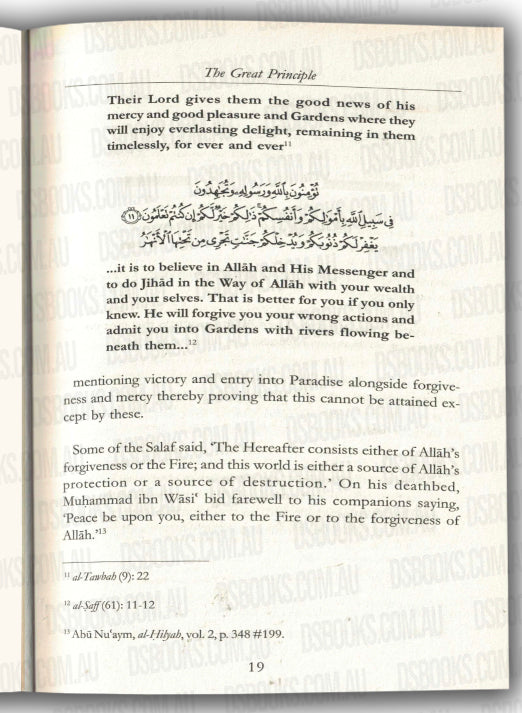 The Great Principle
Their Lord gives them the good news of his
mercy and good pleasure and Gardens where they
will enjoy everlasting delight, remaining in them
timelessly, for ever and ever¹¹
تُؤْمِنُونَ بِاللَّهِ وَرَسُولِهِ وَتُجَاهِدُونَ
فِي سَبِيلِ اللَّهِ بِأَمْوَالِكُمْ وَأَنفُسِكُمْ ذَٰلِكُمْ خَيْرٌ لَّكُمْ إِن كُنتُمْ تَعْلَمُونَ ﴿١١﴾
يَغْفِرْ لَكُمْ ذُنُوبَكُمْ وَيُدْخِلْكُمْ جَنَّاتٍ تَجْرِي مِن تَحْتِهَا الْأَنْهَارُ
...it is to believe in Allāh and His Messenger and
to do Jihād in the Way of Allāh with your wealth
and your selves. That is better for you if you only
knew. He will forgive you your wrong actions and
admit you into Gardens with rivers flowing be-
neath them...¹²
mentioning victory and entry into Paradise alongside forgive-
ness and mercy thereby proving that this cannot be attained ex-
cept by these.
Some of the Salaf said, ‘The Hereafter consists either of Allāh’s
forgiveness or the Fire; and this world is either a source of Allāh’s
protection or a source of destruction.’ On his deathbed,
Muḥammad ibn Wāsi‘ bid farewell to his companions saying,
‘Peace be upon you, either to the Fire or to the forgiveness of
Allāh.’¹³
¹¹ al-Tawbah (9): 22
¹² al-Ṣaff (61): 11-12
¹³ Abū Nu‘aym, al-Hilyah, vol. 2, p. 348 #199.
19
DSBOOKS.COM.AU